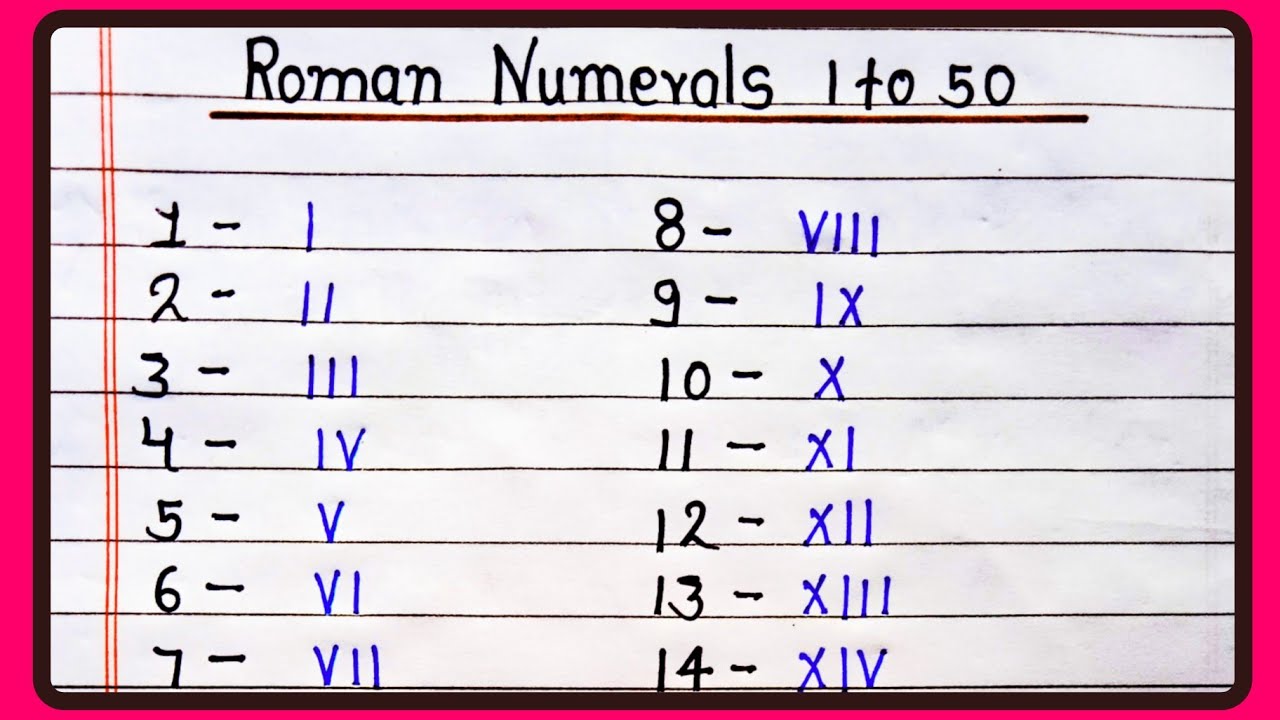 Roman Numerals 1 to 50
1 - I
2 - II
3 - III
4 - IV
5 - V
6 - VI
7 - VII
8 - VIII
9 - IX
10 - X
11 - XI
12 - XII
13 - XIII
14 - XIV